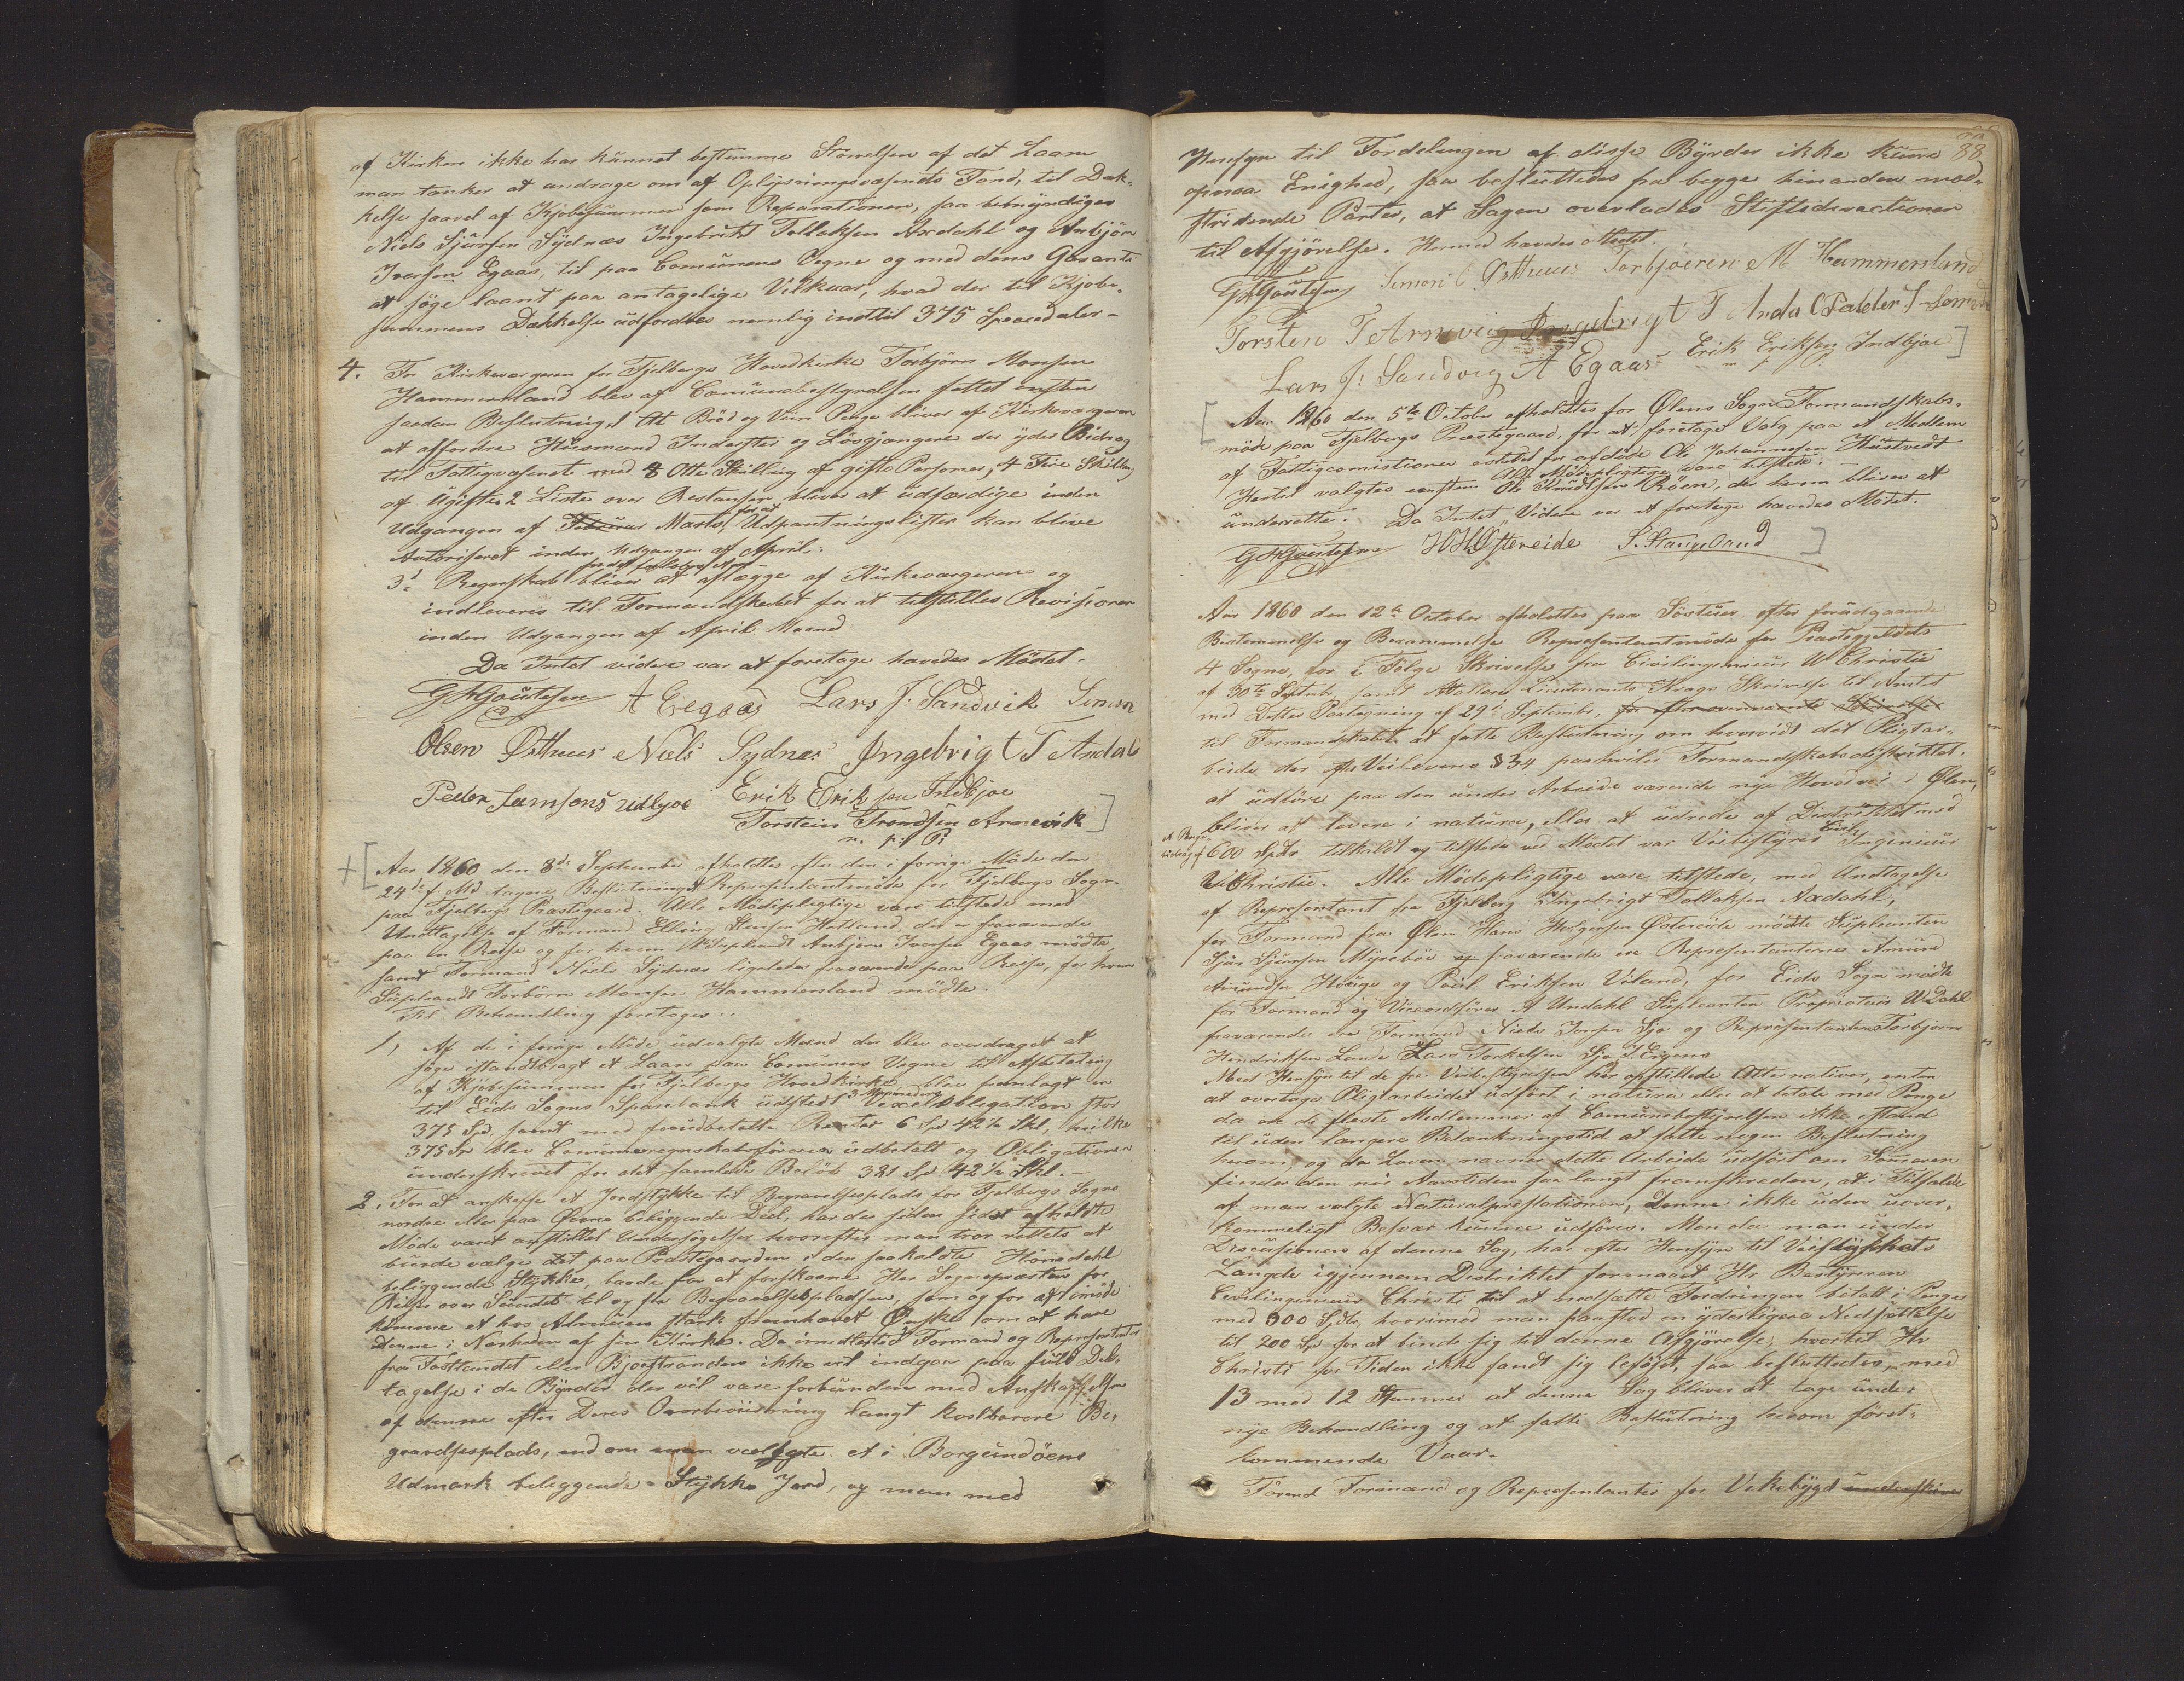 af Kirken ikke har kunnet bestemme Størrelsen af det Laan
man tænker at andrage om af Oplysningsvæsenets Fond, til Dæk-
kelse saavel af Kjøbesummen som Reparationen, saa bemyndiges
Niels Sjursen Sydnæs Ingebrikt Tollaksen Axdahl og Anbjörn
Iversen Egaas, til paa Comunens Vegne og med dens Garanti
at söge laant paa antagelige Vilkaar, hvad der til Kjøbe-
summens Dækkelse udfordres nemlig indtil 375 Speciedaler-
4. For Kirkeværgeren for Fjelbergs Hovedkirke Torbjörn Monsen
Hammersland blev af Comunebestyrelsen fattet
saadan Beslutning, 1 At Bröd og Viin Penge bliver af Kirkeværgeren
at affordre Huusmænd Inderster og Lösgjængere der yder Bidrag
til Fattigvæsenet med 8 Otte Skilling af gifte Personer, 4 Fire Skilling
af Ugifte. 2 Liste over Restancen bliver at udfærdige inden
Udgangen af Marts, for at Udpantningslister kan blive
Autoriseret inden Udgangen af April.
3d Regnskab for det forløbne Aar bliver at aflægge af Kirkeværgeren og
indleveres til Formandskabet for at tilstilles Revisionen
inden Udgangen af April Maaned
Da Intet videre var at foretage hævedes Mödet-
GAGautesen A Eegaas Lars J. Sandvik Simon
Olsen Østhuus Niels Sydnæs Ingebrigt T Axdal
Peder Samsons Udbjoe Erik Eriksen Indbjoe
Torstein Trondsen Arnevik
m. p. P
Aar 1860 den 3de September afholdtes efter den i forrige Möde den
24de f. Md tagne Beslutning Repræsentantmöde for Fjelbergs Sogn
paa Fjelbergs Præstegaard. Alle Mödepligtige vare tilstede med
Undtagelse af Formand Elling Steensen Hetland, der er fraværende
paa en Reise og for hvem Supleandt Anbjörn Iversen Egaas mödte,
samt Formand Niels Sydnæs ligeledes fraværende paa Reise, for hvem
Supleandt Torbörn Monsen Hammersland mödte.
Til Behandling foretoges:
1, Af de i forrige Möde udvalgte Mænd der blev overdraget at
söge istandbragt et Laan paa Comunens Vegne til Afbetaling
af Kjöbesummen for Fjelbergs Hovedkirke, blev fremlagt en
til Eids Sogns Sparebank udstedt 3 Maaneders Vexel Obligation stor
375 Sp, samt med forudbetalte Renter 6 Sp 42½ Skl, hvilke
375 Sp blev Comuneregnskabsföreren udbetalt og Obligationen
underskrevet for det samlede Belöb 381 Sp 42½ Skl.-
2. For at anskaffe et Jordstykke til Begravelsesplads for Fjelbergs Sogns
nordre eller paa Öerne beliggende Deel, har der siden sidst afholdte
Möde været anstillet Undersögelser hvorefter man tror rettest at
burde vælge det paa Præstegaarden i den saakaldte Hönsedahl
beliggende Stykke, baade for at forskaane Her Sognepræsten for
Reiser over Sundet til og fra Begravelsespladsen, som og for at imöde
komme et hos Almuen stærk fremhævet Önske om at have
denne i Nærheden af sin Kirke. Da imidlertid Formand og Repræsentanter
fra Fastlandet eller Bjoestranden ikke vil indgaa paa fuld Del-
tagelse i de Byrder der vil være forbunden med Anskaffelsen
af denne efter Deres Overbeviisning langt kostbarere Be-
gravelsesplads, end om man valgte et i Borgundöens
Udmark beliggende Stykke Jord, og man med
88
Hensyn til Fordelingen af disse Byrder ikke kunne
opnaa Enighed, saa besluttedes fra begge hinanden mod-
stridende Parter, at Sagen overlades Stiftsdirectionen
til Afgjörelse. Hermed hævedes Mödet.
GAGautesen Simon O Østhuus Torbjøeren M Hammersland
Torsten T Arneviig Ingebrigt T Axdal Pædder S
Lars J. Sandvig A Egaas Erik Eriksen Indbjoe
m p P
Aar 1860 den 5te October afholdtes for Ölens Sogn Formandskabs-
möde paa Fjelbergs Præstegaard, for at foretage Valg paa et Medlem
af Fattigcomissionen istedet for afdöde Ole Johannesen Hustvedt
Alle Mödepligtige vare tilstede.-
Hertil valgtes eenstem: Ole Knudtsen Röen, der herom bliver at
underrette. Da Intet Videre var at foretage hævedes Mödet-
GAGautesen HHÖstereide S. Stangeland
Aar 1860 den 12te October afholdtes paa Sörtun efter forudgaaende
Bestemmelse og Berammelse Repræsentantmöde for Præstegjeldets
4 Sogne, for i Fölge Skrivelse fra Civilingenieur W Christie
af 30te Septbr, samt Lieutenants Krags Skrivelse til Amtet
med Dettes Paategning af 29de September,
til Formandskabet at fatte Beslutning om hvorvidt det Pligtar-
beide, der efter Veilovens §34 paahviler Formandskabsdistriktet,
at udföre paa den under Arbeide værende nye Hovedvei i Ölen,
bliver at levere i natura, eller at udrede af Distriktet med
et Penge-
bidrag af 600 Spdlr tilkaldt og tilstede ved Mödet var Veibestyrer Civil Ingenieur
W Christie. Alle Mödepligtige vare tilstede, med Undtagelse
af Repræsentant fra Fjelberg Ingebrigt Tollaksen Axdahl;
for Formand fra Ölen Hans Helgesen Östereide mödte Supleanten
Sjur Sjursen Myreböe fraværende ere Repræsentanterne Amund
Amundsen Höuge og Poul Eriksen Viland, for Eids Sogn mödte
for Formand og Viceordförer A Undahl Supleanten Proprietair W Dahl
fraværende ere Formand Niels Jonsen Sjo og Repræsentanterne Torbjørn
Hendriksen Lande Lars Torkelsen Sjo
Med Hensyn til de fra Veibestyrelsen her opstillede Alternativer, enten
at overtage Pligtarbeidet udfört i natura eller at betale med Penge
da er de fleste Medlemmer af Comunebestyrelsen ikke istand
til uden længere Betænkningstid at fatte nogen Beslutning
herom, og da Loven nævner dette Arbeide udfört om Someren
finder den nu Aarstiden saa langt fremskreden, at i Tilfælde
af man valgte Naturalpræstationen, denne ikke uden uover-
kommeligt Besvær kunne udföres. Men da man under
Discusionen af denne Sag, har efter Hensyn til Veistykkets
Længde igjennem Distriktet formaaet Hr Bestyreren
Civilingenieur Christi til at nedsætte Fordringen betalt i Penge
med 300 Spdlr, hvorimod man paastod en yderligere Nedsættelse
til 200 Sp for at binde sig til denne Afgjörelse, hvortil Hr
Christi for Tiden ikke fandt sig beföjet, saa besluttedes, med
13 mod 12 Stemmer at denne Sag bliver at tage under
nye Behandling og at fatte Beslutning herom först-
kommende Vaar-
Förend Formænd og Repræsentanter for Vikebygd